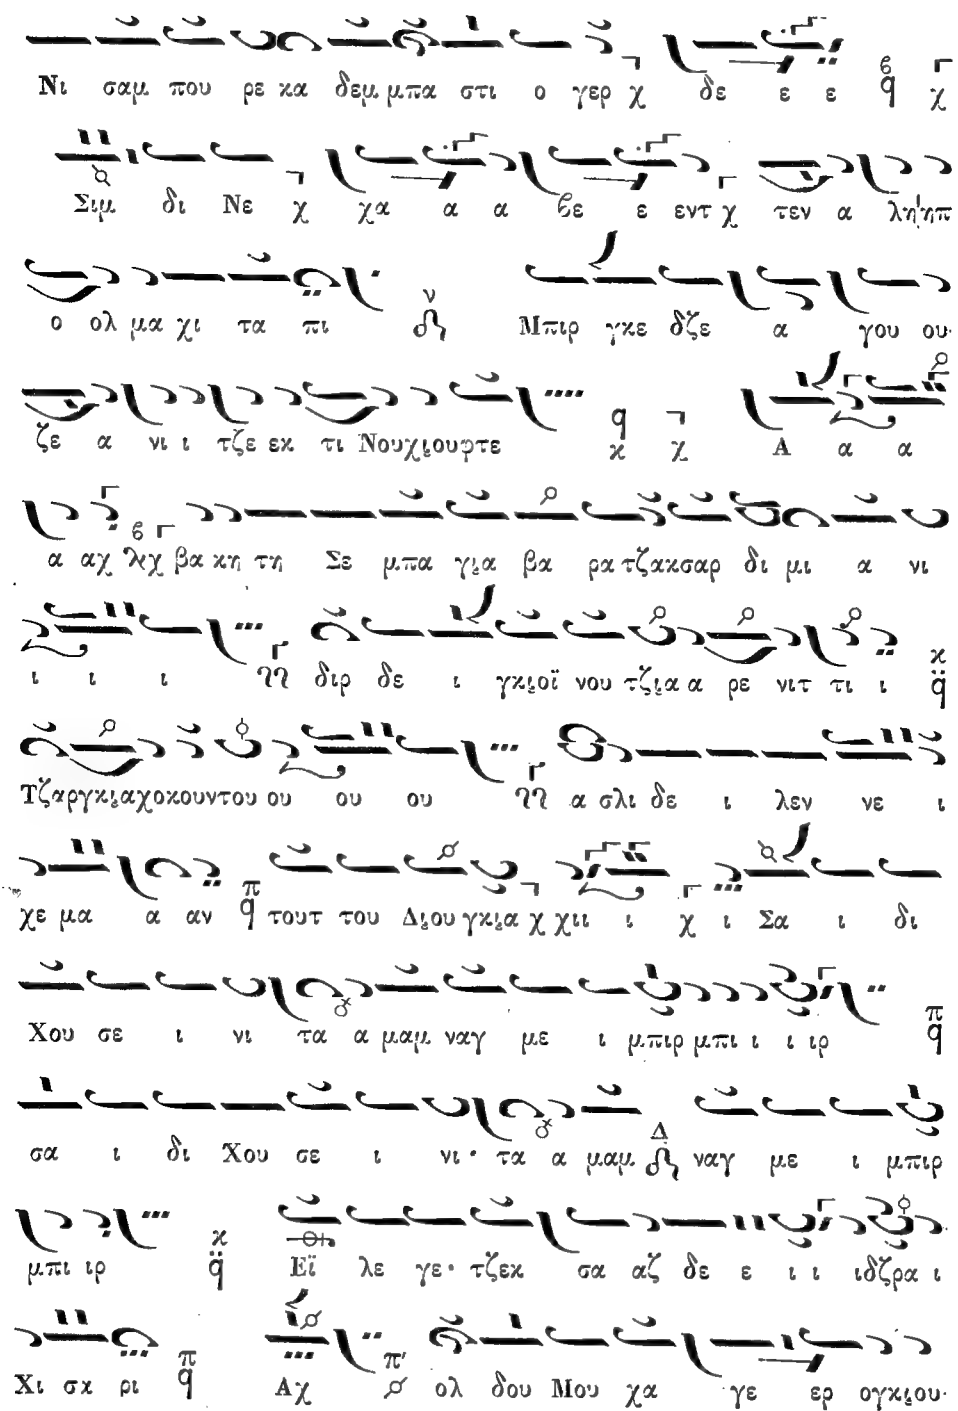 Νι σαμ που ρε κα δεμ μπα στι ο γερ χ δε ε ε ϐ q χ
Σιμ δι Νε χ χα α α ϐε ε εντ χ τεν α λη'ηπ
ο ολ μα χι τα πι ν Μπιρ γκε δζε α γου ου·
ζε α νι ι τζε εκ τι Νουχιουφτε q κ χ Α α α
α αχ ϐ χ βα κη τη Σε μπα για βα ρα τζακσαρ δι μι α νι
ι ι ι διρ δε ι γκιοϊ νου τζια α ρε νιτ τι ι κ q
Τζαργκιαχοκουντου ου ου ου α σλι δε ι λεν νε ι
χε μα α αν π q τουτ του Διου γκια χ χιι ι χ ι Σα ι δι
Χου σε ι νι τα α μαμ ναγ με ι μπιρ μπι ι ι ιρ π q
σα ι δι Χου σε ι νι · τα α μαμ Δ ναγ με ι μπιρ
μπι ιρ κ q Εϊ λε γε · τζεκ σα αζ δε ε ι ι ιδζρα ι
Χι σκ ρι π q Αχ π' ολ δου Μου χα γε ερ ογκιου·